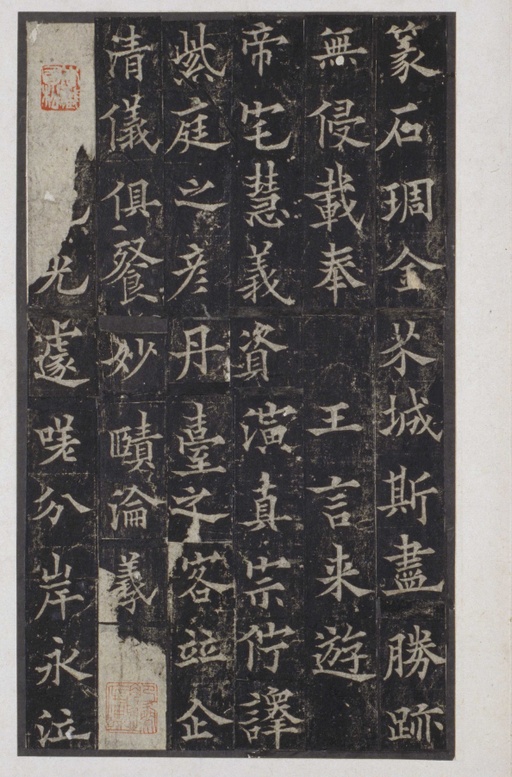 篆石琱金芥城斯盡勝跡
無侵載奉 王言来遊
帝宅慧義資演真宗佇譯
紫庭之彦丹臺之客並企
清儀俱餐妙賾淪羲
光遽嗟分岸永泣